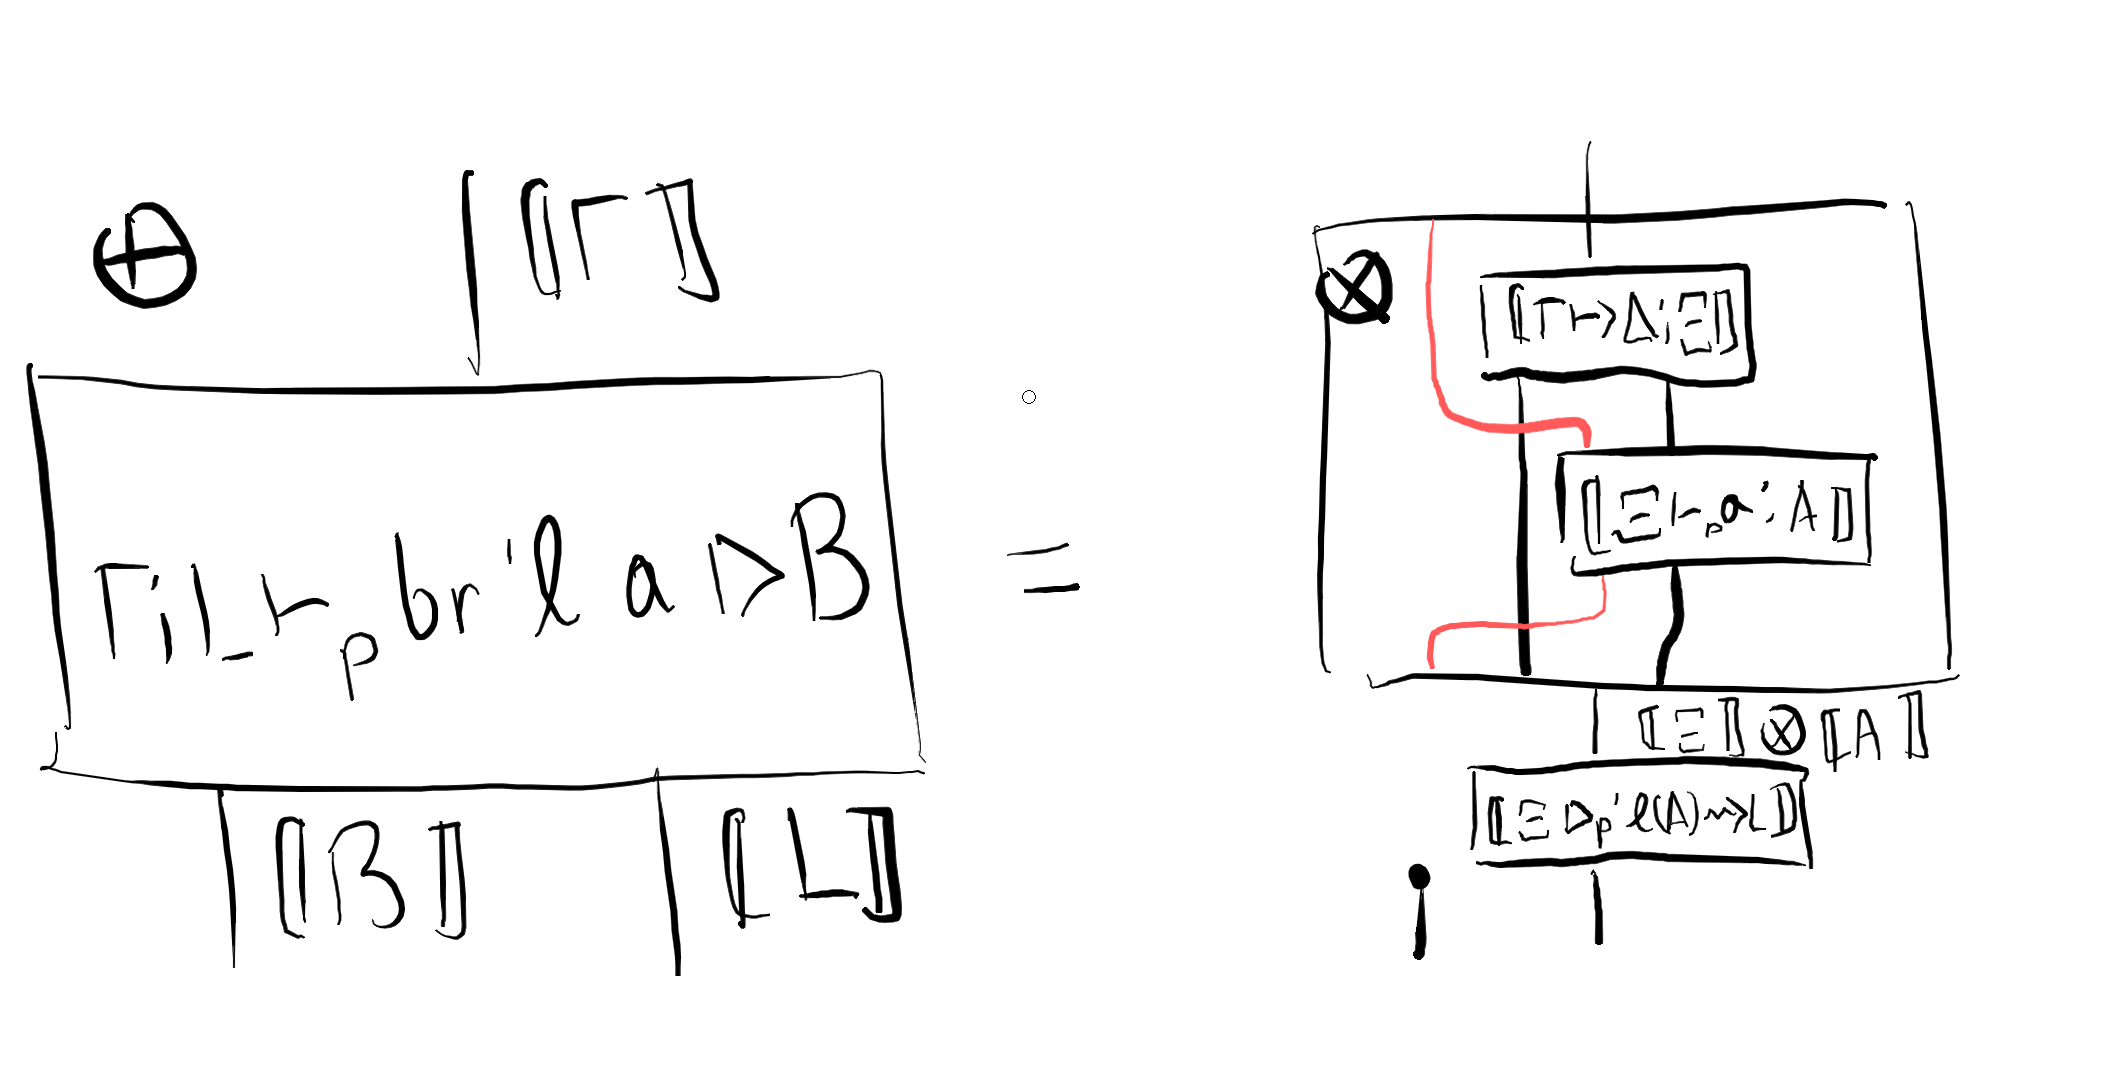 ⊕
⟦Γ⟧
Γ; L ⊢ₚ br 'ℓ a ▷ B
⟦B⟧
⟦L⟧
=
⊗
⟦Γ ↦ Δ; Ξ⟧
⟦Ξ ⊢ₚ a : A⟧
⟦Ξ⟧ ⊗ ⟦A⟧
⟦Ξ ▷ₚ 'ℓ(A) ⇝ L⟧